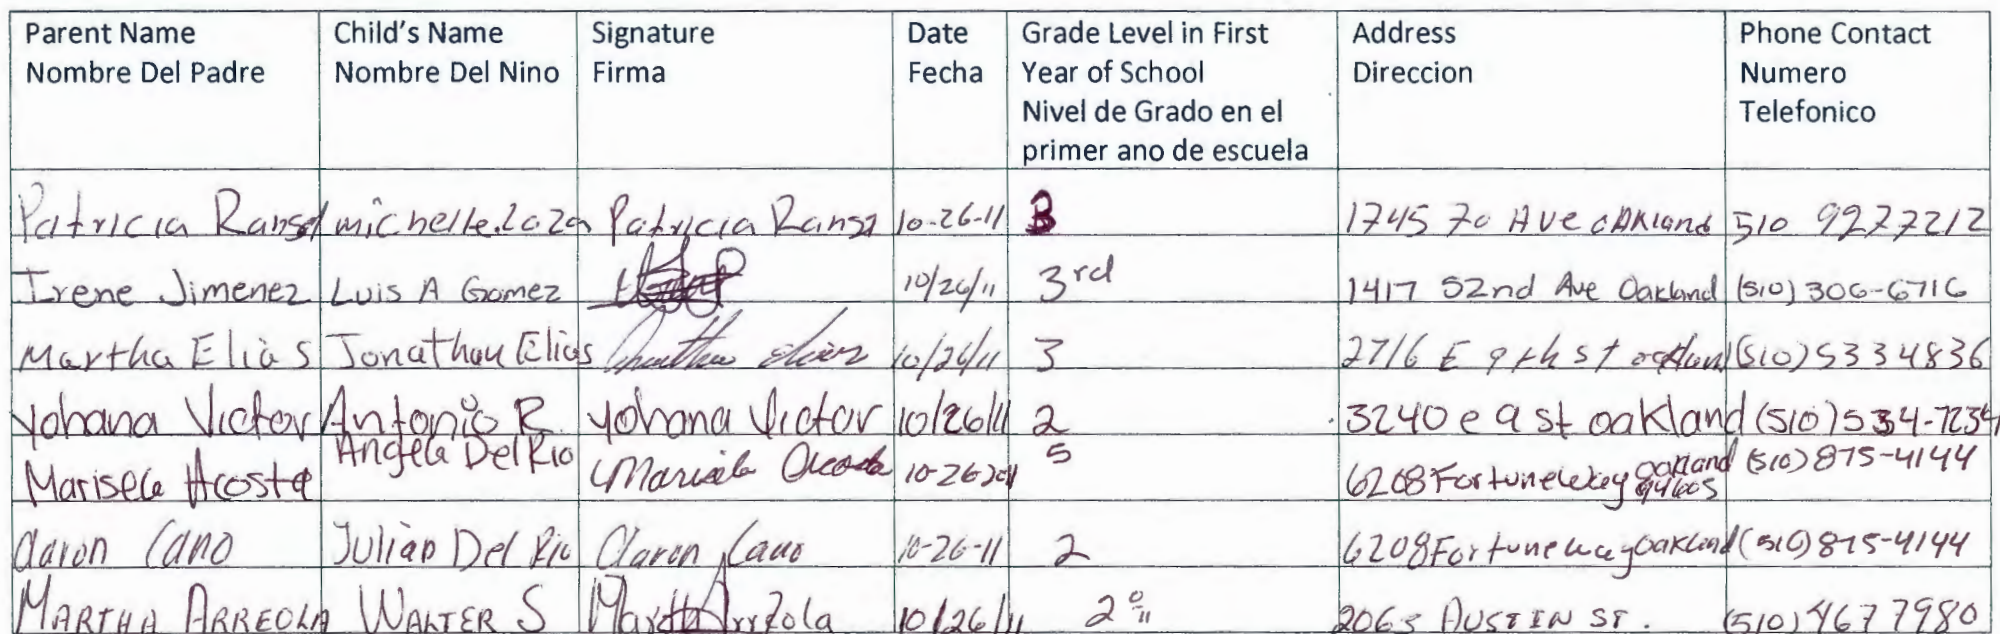 Parent Name Nombre Del Padre | Child's Name Nombre Del Nino | Signature Firma | Date Fecha | Grade Level in First Year of School Nivel de Grado en el primer ano de escuela | Address Direccion | Phone Contact Numero Telefonico
Patricia Ransel | michelle.loza | Patricia Ransl | 10-26-11 | 3 | 1745 70 AVe oAKland | 510 9277212
Irene Jimenez | Luis A Gomez | | 10/26/11 | 3rd | 1417 52nd Ave Oakland | (510) 306-6716
Martha Elias | Jonathan Elias | Martha Elias | 10/26/11 | 3 | 2716 E 9th st oakland | (510) 5334836
Yohana Victor | Antonio R. | Yohana Victor | 10/26/11 | 2 | 3240 east oakland | (510) 534-7234
Marisela Acosta | Angela Del Rio | Marisela Acosta | 10-26-2011 | 5 | 6208 Fortuneway oakland 94605 | (510) 875-4144
Aaron Cano | Julian Del Rio | Aaron Cano | 10-26-11 | 2 | 6208 Fortuneway oakland | (510) 875-4144
MARTHA ARREOLA | WALTER S | Martha Arreola | 10/26/11 | 2º | 2063 AUSTIN ST. | (510) 4677980